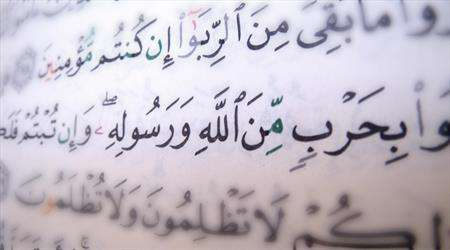 وا۟ مَا بَقِىَ مِنَ ٱلرِّبَوٰٓا۟ إِن كُنتُم مُّؤْمِنِينَ
وا۟ بِحَرْبٍ مِّنَ ٱللَّهِ وَرَسُولِهِۦ ۖ وَإِن تُبْتُمْ فَلَ
لِكُمْ لَا تَظْلِمُونَ وَلَا تُظْلَمُونَ